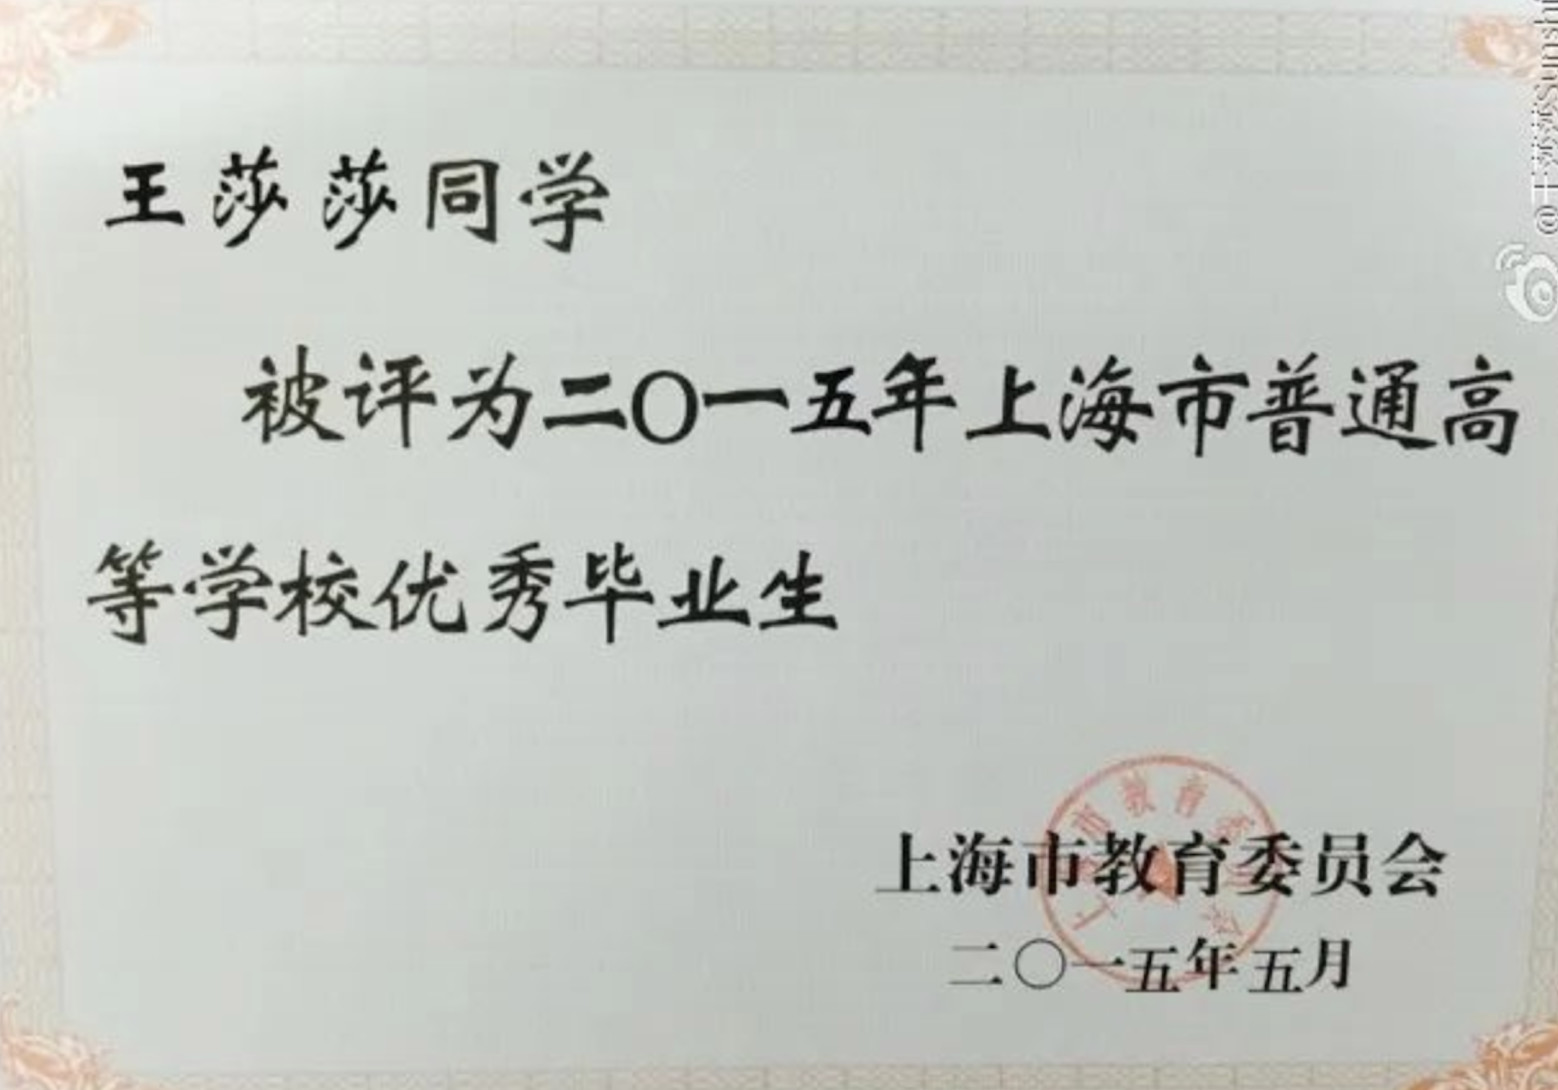 王莎莎同学
被评为二〇一五年上海市普通高
等学校优秀毕业生
上海市教育委员会
二〇一五年五月
@王莎莎Sunshi